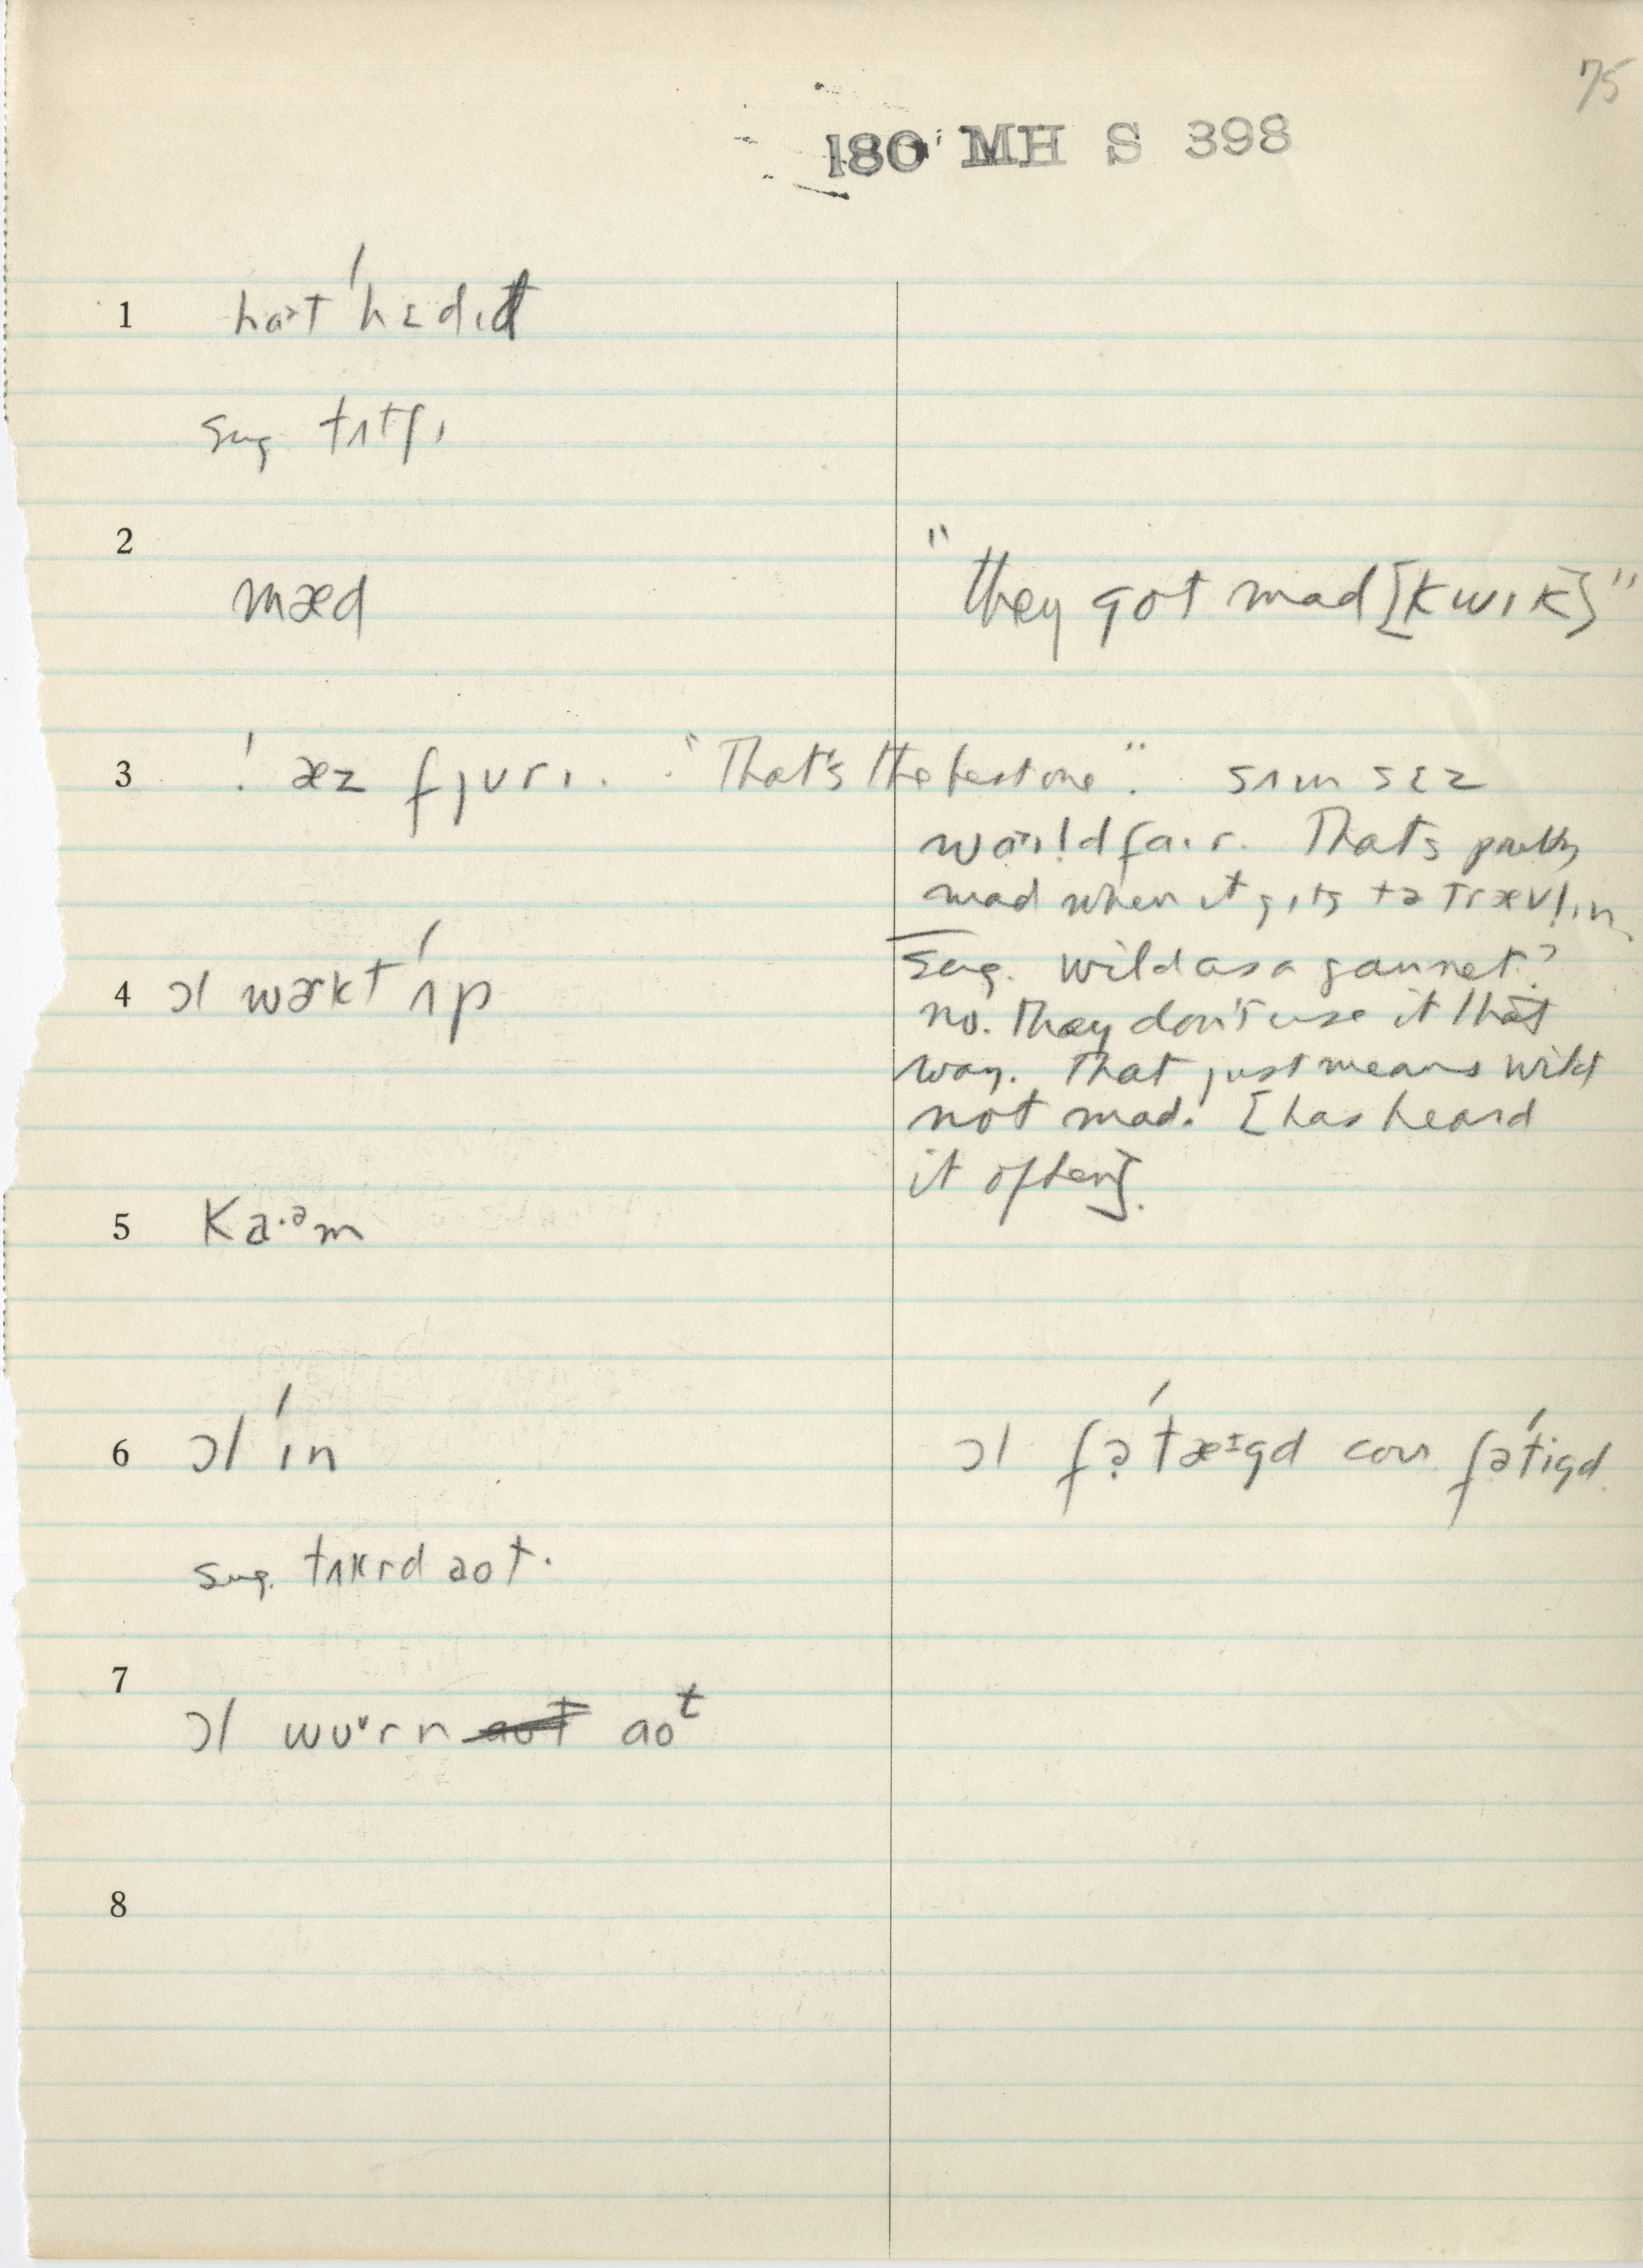 75
180 MH S 398
1 hɑɚt ˈhɛdɪd
sug tʌtʃɪ
2
mæd "they got mad [kwɪk]"
3 ! æz fjʊrɪ. "That's the best one". sʌm sɛz
world fair. That's pretty
mad when it gɪts tə trævl̩ɪn
sug. wild as a gannet?
4 ɔl wɚkt ˈʌp no. They don't use it that
way. That just means wild
not mad. [has heard
it often].
5 ka·ᵊm
6 ɔl ˈɪn ɔl fəˈtæɪgd corr. fəˈtigd
sug. tʌkrd aot.
7
ɔl wʊᵛrn aot
8